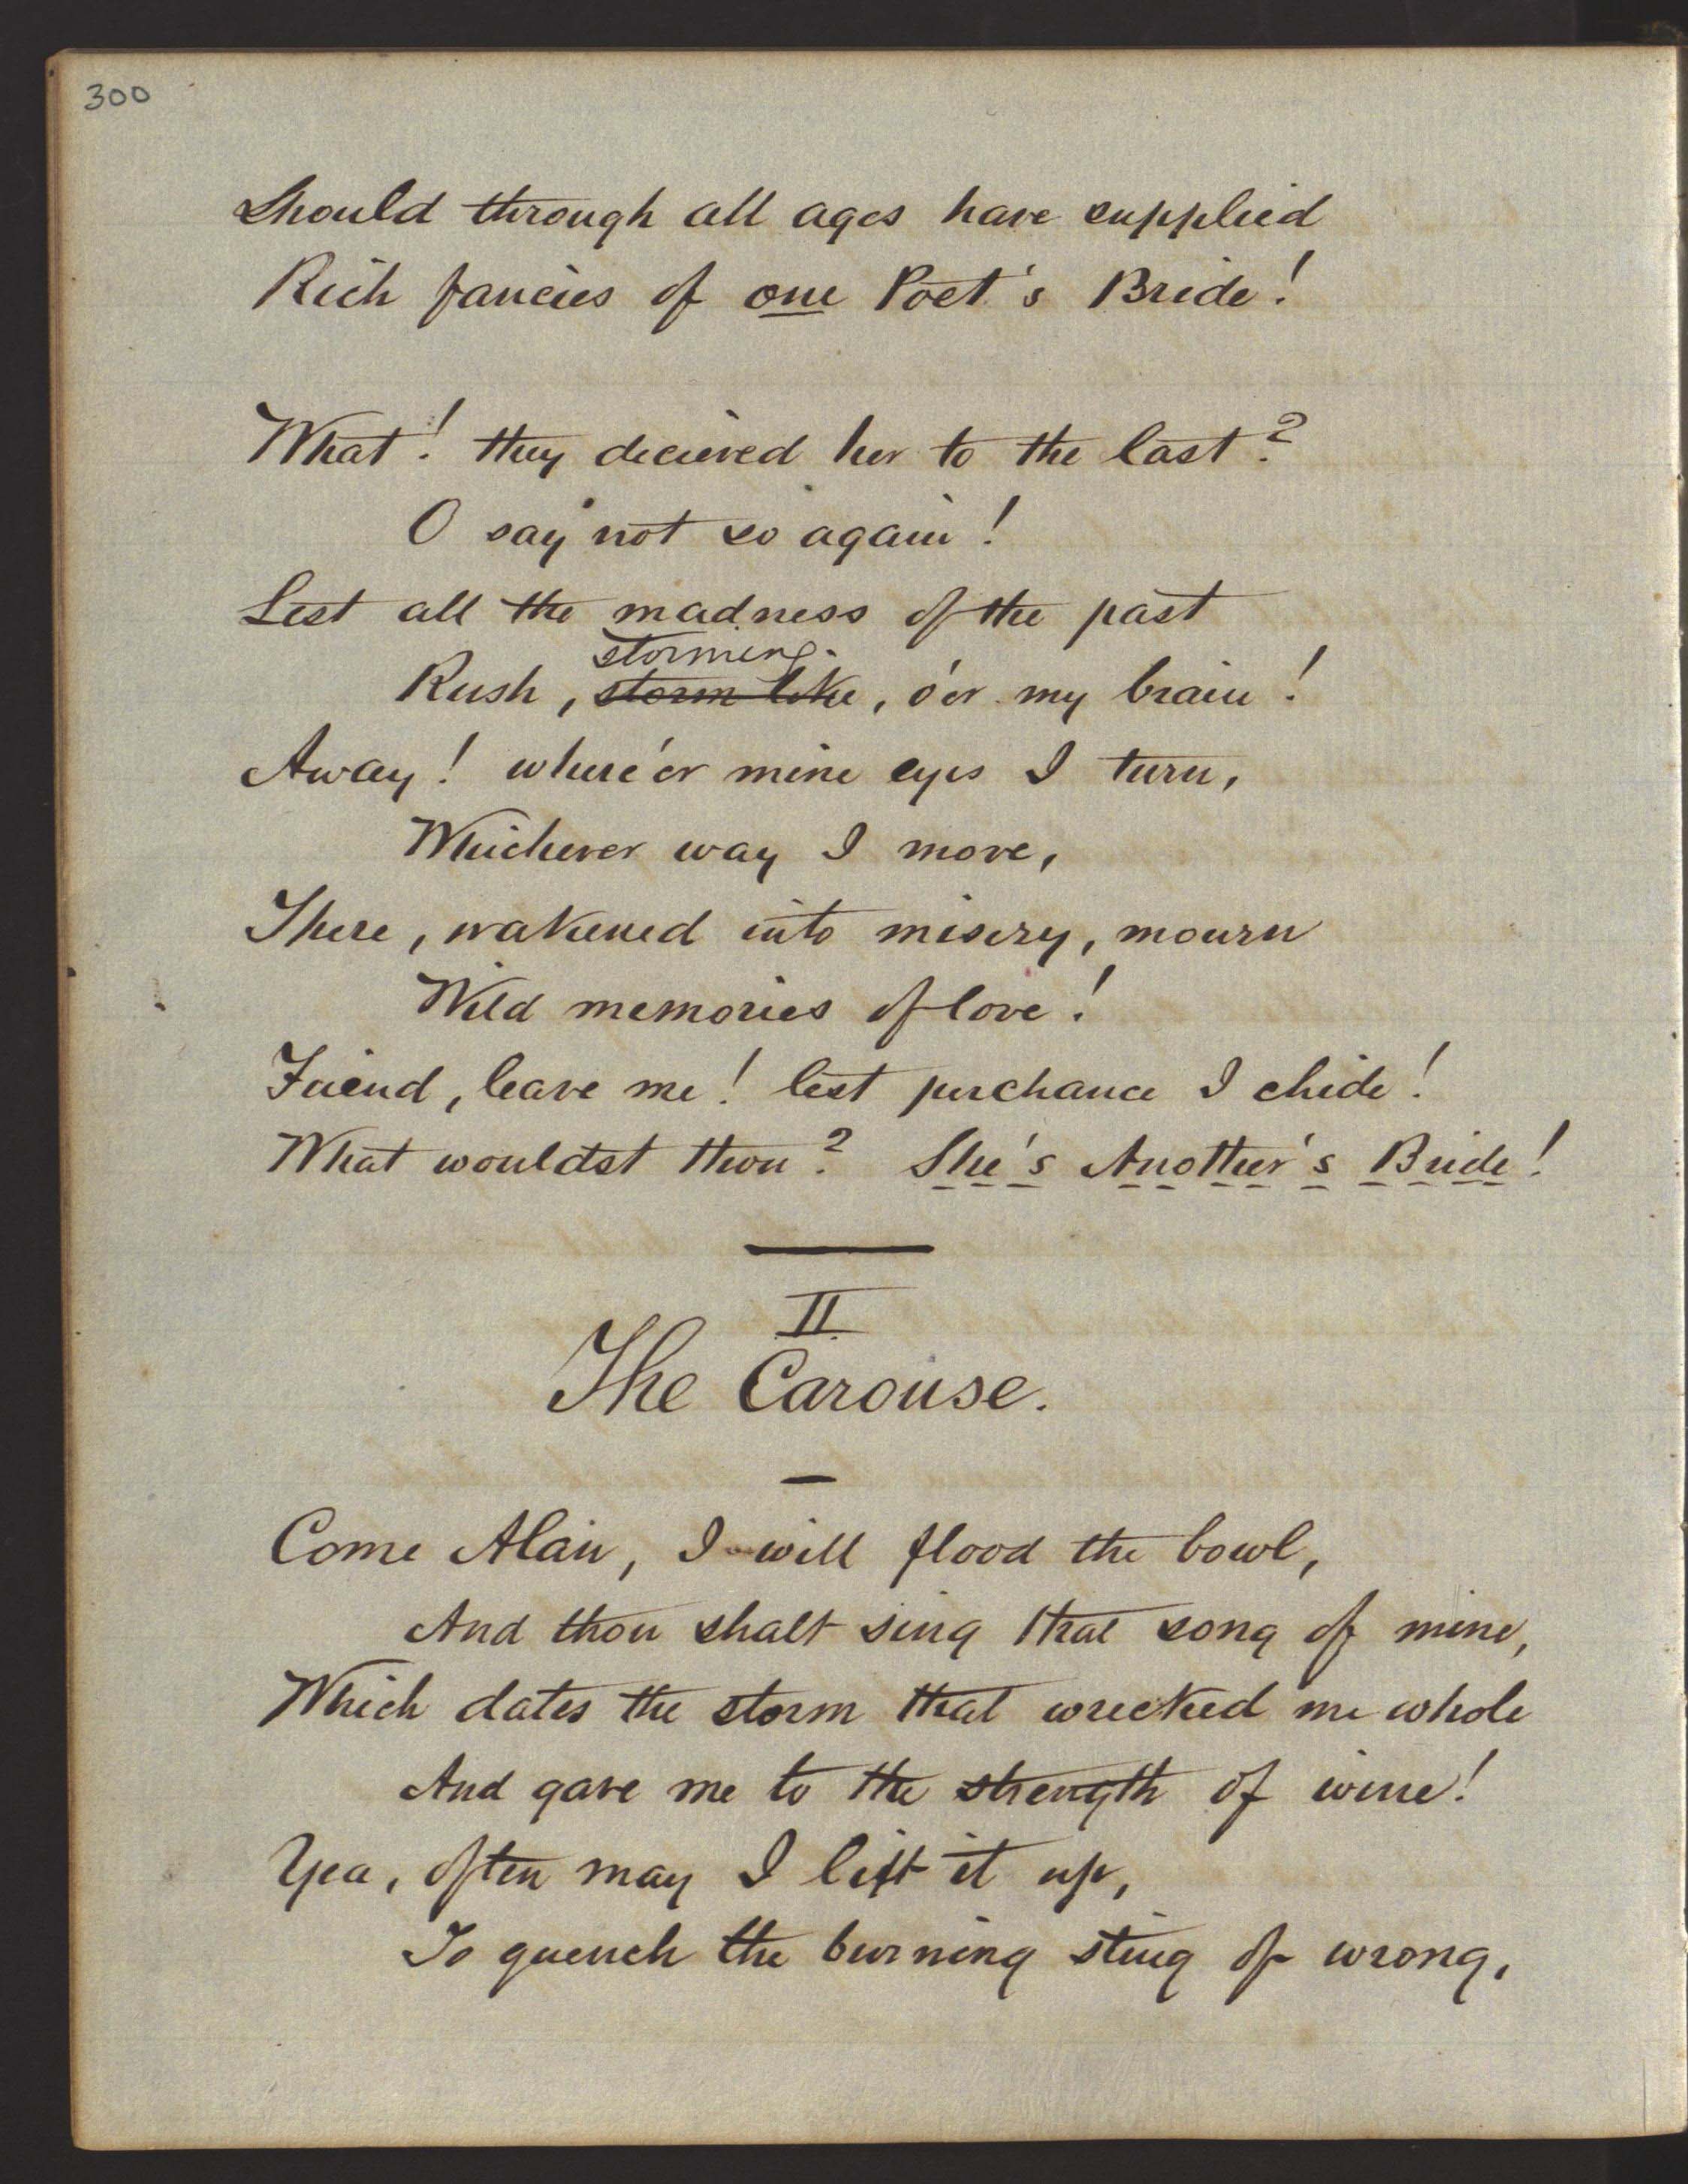 300
Should through all ages have supplied
Rich fancies of one Poet's Bride!
What! they decieved her to the last?
O say not so again!
Lest all the madness of the past
storming
Rush, storm like, o'er my brain!
Away! where'er mine eyes I turn,
Whichever way I move,
There, wakened into misery, mourn
Wild memories of love!
Friend, leave me! lest perchance I chide!
What wouldst thou? She's Another's Bride!
II.
The Carouse.
Come Alain, I will flood the bowl,
And thou shalt sing that song of mine,
Which dates the storm that wrecked me whole
And gave me to the strength of wine!
Yea, often may I lift it up,
To quench the burning sting of wrong,